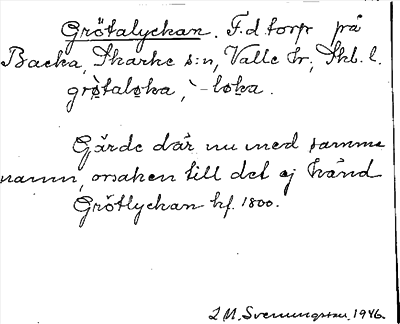 Grötalyckan. F.d torp på
Backa, Skarke s:n, Valle hr, Skb. l.
grötaløka, -løka.
Gärde där nu med samma
namn, orsaken till det ej känd
Grötlyckan kf. 1800.
L M. Svenungsson. 1946.